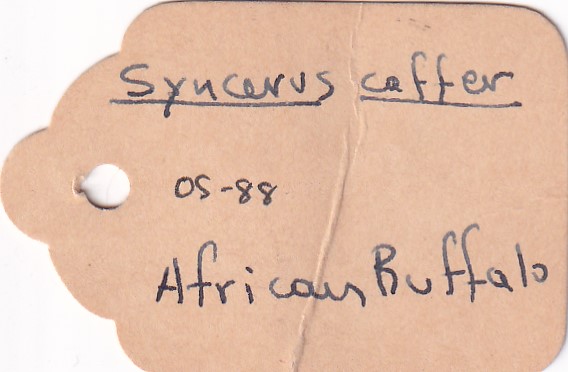 Syncerus caffer
OS-88
African Buffalo